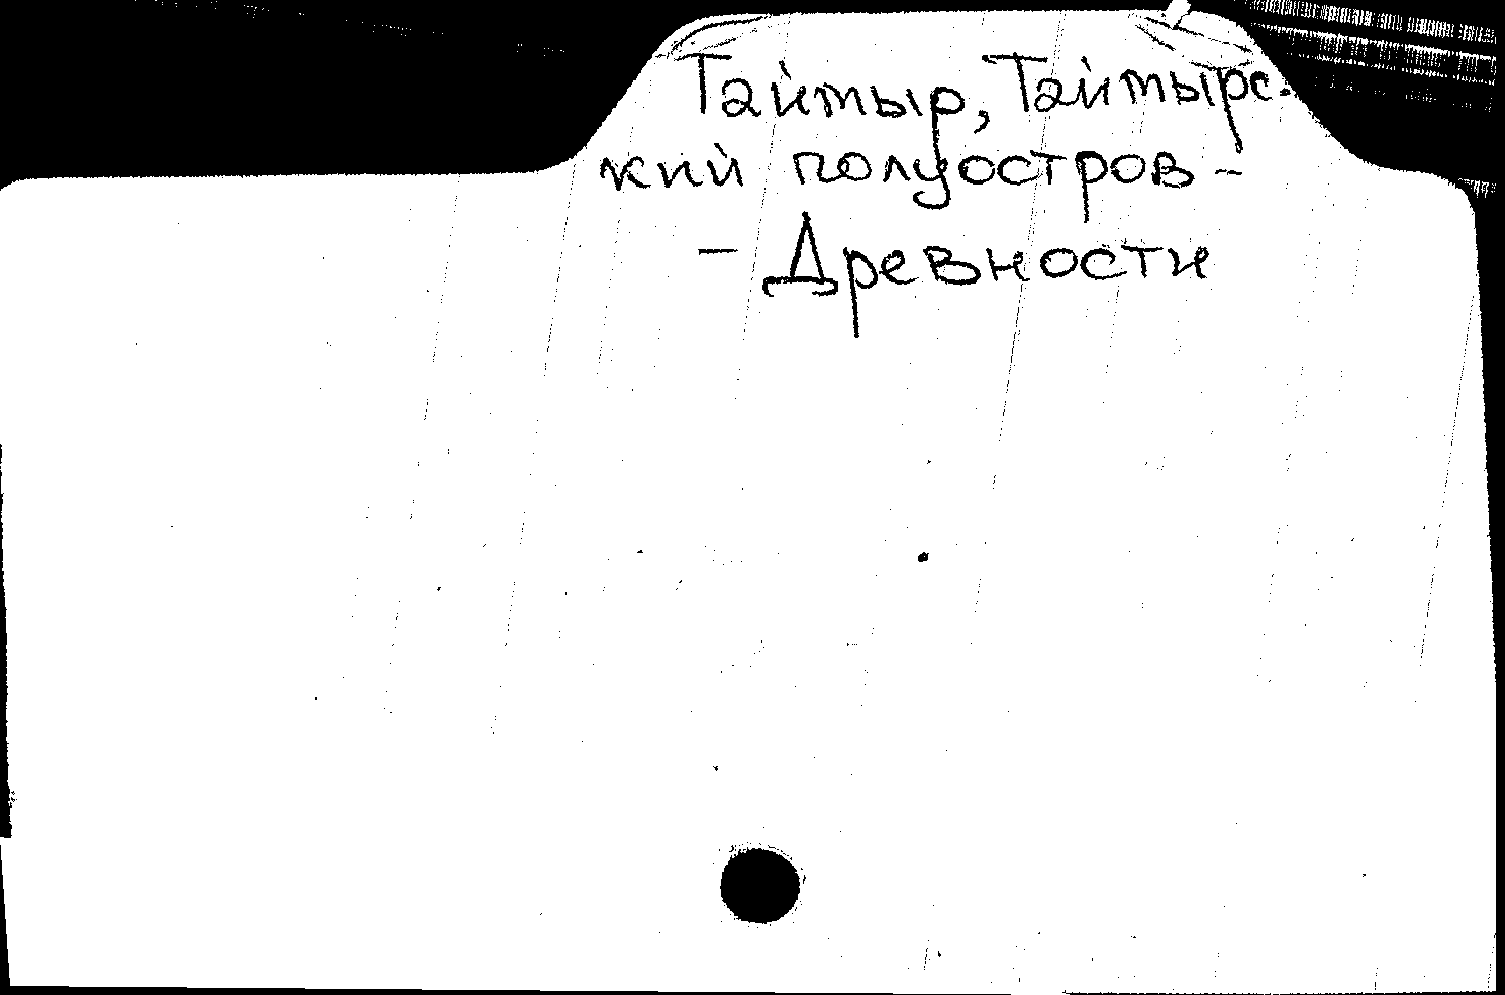 Таймыр, Таймырс-
кий полуостров -
- Древности